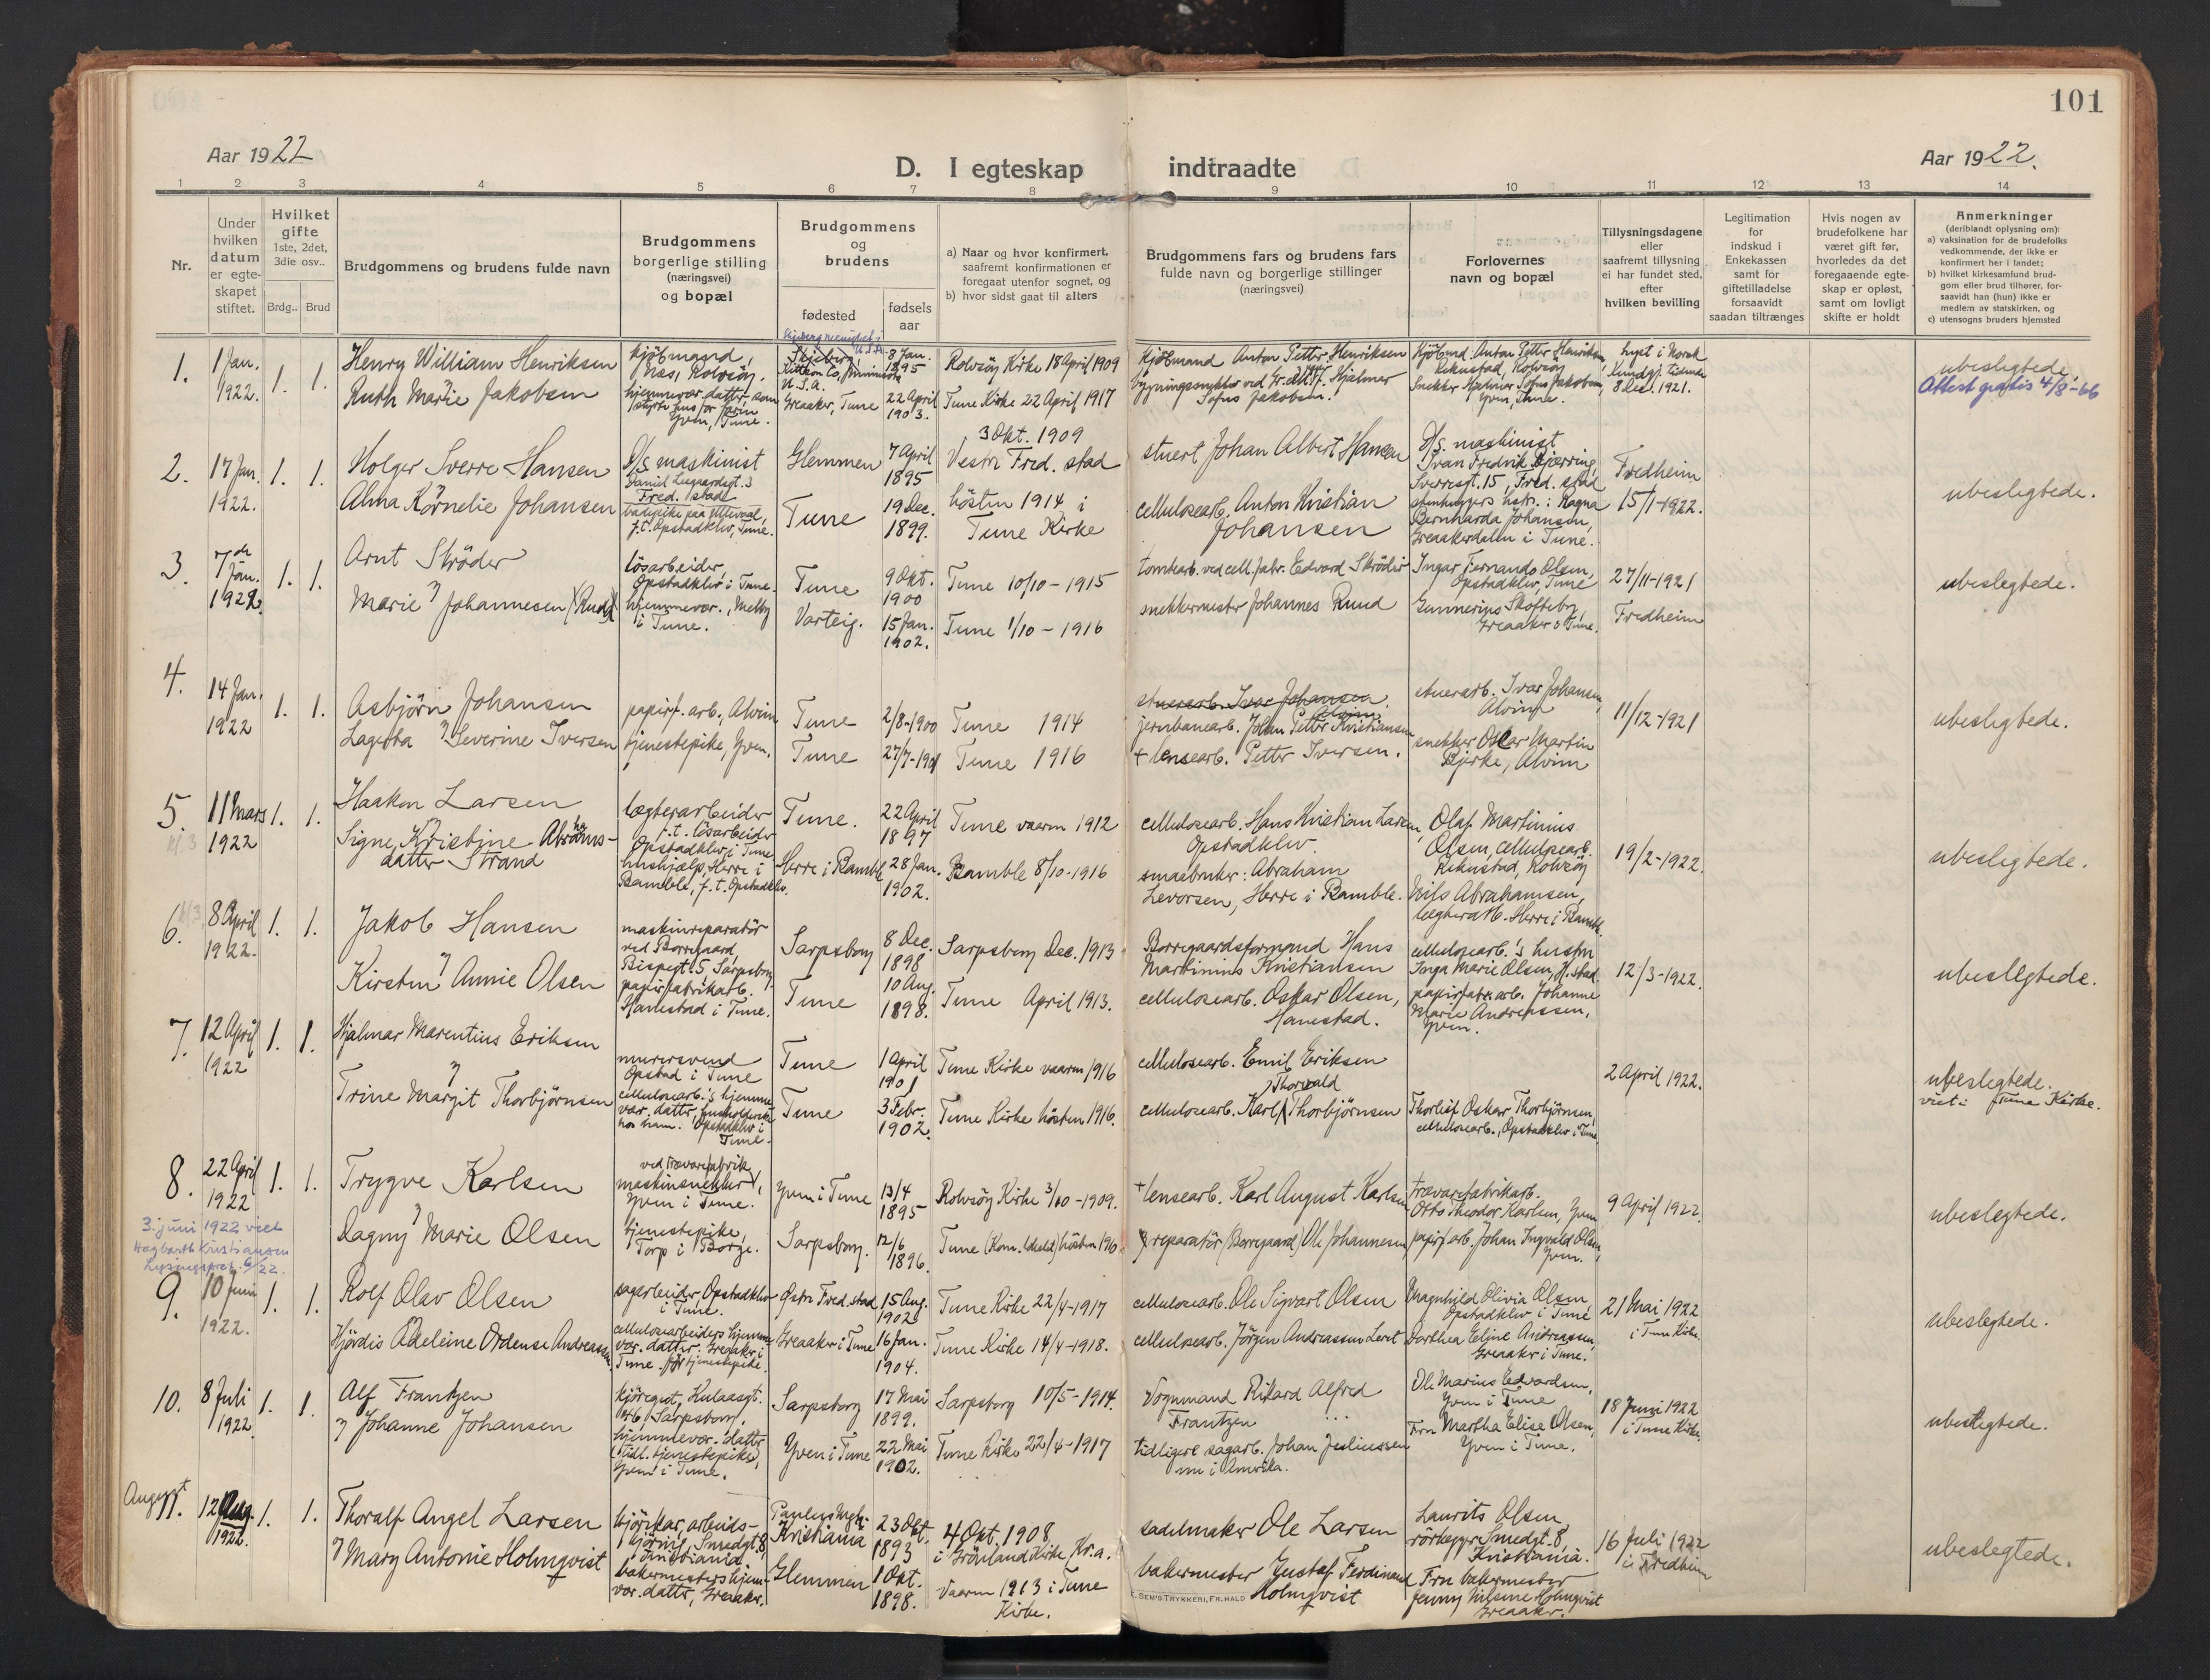 101
Aar 1922
D. I egteskap
indtraadte
Aar 1922.
1 2 3 4 5 6 7 8 9 10 11 12 13 14
Nr.
Under hvilken datum er egteskapet stiftet.
Hvilket gifte 1ste, 2det, 3die osv..
Brdg.. Brud
Brudgommens og brudens fulde navn
Brudgommens borgerlige stilling (næringsvei) og bopæl
Brudgommens og brudens
fødested
fødsels aar
a) Naar og hvor konfirmert, saafremt konfirmationen er foregaat utenfor sognet, og
b) hvor sidst gaat til alters
Brudgommens fars og brudens fars fulde navn og borgerlige stillinger (næringsvei)
Forlovernes navn og bopæl
Tillysningsdagene eller saafremt tillysning ei har fundet sted, efter hvilken bevilling
Legitimation for indskud i Enkekassen samt for giftetilladelse forsaavidt saadan tiltrænges
Hvis nogen av brudefolkene har været gift før, hvorledes da det foregaaende egteskap er opløst, samt om lovligt skifte er holdt
Anmerkninger
(deriblandt oplysning om):
a) vaksination for de brudefolks vedkommende, der ikke er konfirmert her i landet;
b) hvilket kirkesamfund brudgom eller brud tilhører, forsaavidt han (hun) ikke er medlem av statskirken, og
c) utensogns bruders hjemsted
1. 1 Jan. 1922. 1. 1.
Henry William Henriksen
Ruth Marie Jakobsen
kjöbmand, Næs, Rolvsöy.
hjemmevær. datter, som styrte hus for farin Yven, Tune.
Skjeberg, Kittson Co, Minnisota U.S.A.
8 Jan. 1895
Rolvsöy Kirke 18 April 1909
Greaaker, Tune 22 April 1903.
Tune Kirke 22 April 1917
Kjöbmand Anton Petter Henriksen
Hjalmar Sofus Jakobsen.
Kjöbmd. Anton Petter Henriksen, Rekustad, Rolvsöy
Snekker Hjalmar Sofus Jakobsen, Yven, Tune.
Lyst i Norsk 8 Des. 1921.
ubeslegtede.
Attest gratis 4/8-66
2. 17 Jan. 1922. 1. 1.
Holger Sverre Hansen
Alma Kornelie Johansen
D/s maskinist
Fred. stad
Opstadklev, Tune.
Glemmen 7 April 1895
3 Okt. 1909 Vestre Fred. stad
Tune 19 Dec. 1899.
hösten 1914 i Tune Kirke
stuert Johan Albert Hansen
cellulosearb. Anton Kristian Johansen
D/s. maskinist Ivan Fredrik Bjerring, Sverresgt. 15, Fred. stad
Ragna Bernharda Johansen, Greaakerdalen i Tune.
Fredheim 15/1-1922.
ubeslegtede.
3. 7de Jan. 1922. 1. 1.
Arnt Ströder
Marie Johannesen (Ruud)
lösarbeider, Opstadklev i Tune.
hjemmevær., Melby i Tune.
Tune 9 Okt. 1900
Tune 10/10-1915
Varteig. 15 Jan. 1902.
Tune 1/10-1916
tomtearb. ved cell. fabr. Edvard Ströder
snekkermester Johannes Ruud
Ingar Fernando Olsen, Opstadklev, Tune
Gunnerius Skofteby, Greaaker i Tune.
27/11-1921
Fredheim
ubeslegtede.
4. 14 Jan. 1922 1. 1.
Asbjörn Johansen
Lagerta Severine Iversen
papirf. arb., Alvim
tjenestepike, Yven.
Tune 2/8-1900 Tune 1914
Tune 27/7-1901 Tune 1916
stuerarb. Ivar Johansen, Alvim
jernbanearb. Johan Petter Kristiansen
+ lensearb. Petter Iversen.
stuerarb. Ivar Johansen, Alvim
snekker Oskar Martin Bjerke, Alvim
11/12-1921
ubeslegtede.
5. 11 Mars 1922 1. 1.
Haakon Larsen
Signe Kristine Abrahamsdatter Strand
lægterarbeider f.t. lösarbeider Opstadklev i Tune
hushjælp, Herre i Bamble, f.t. Opstadklev.
Tune. 22 April 1897
Tune vaaren 1912
Herre i Bamble 28 Jan. 1902.
Bamble 8/10-1916
cellulosearb. Hans Kristian Larsen, Opstadklev.
smaabruker: Abraham Levorsen, Herre i Bamble.
Olaf Martinius Olsen, cellulosearb. Rekustad, Rolvsöy
Nils Abrahamsen, lægterarb. Herre i Bamble.
19/2-1922.
ubeslegtede.
6. 8 April 1922. 1. 1.
Jakob Hansen
Kirsten Annie Olsen
maskinreparatör ved Borregaard, Bispegt. 5, Sarpsborg.
papirfabrikarb. Hanestad i Tune.
Sarpsborg 8 Dec. 1898
Sarpsborg Dec. 1913
Tune 10 Aug. 1898.
Tune April 1913.
Borregaardsformand Hans Martinius Kristiansen
cellulosearb. Oskar Olsen, Hanestad.
cellulosearb.'s hustru Inga Marie Olsen, H. stad.
papirfabr. arb. Johanne Marie Andreassen, Yven.
12/3-1922.
ubeslegtede.
7. 12 April 1922 1. 1.
Hjalmar Marentius Eriksen
Trine Margit Thorbjörnsen
murersvend Opstad i Tune
cellulosearb.'s hjemmevær. datter, husholderske hos ham. Opstadklev i Tune.
Tune 1 April 1901
Tune Kirke vaaren 1916
Tune 3 Febr. 1902.
Tune Kirke hösten 1916.
cellulosearb. Emil Eriksen
cellulosearb. Karl Thorvald Thorbjörnsen
Thorleif Oskar Thorbjörnsen, cellulosearb., Opstadklev i Tune.
2 April 1922.
ubeslegtede.
viet i Tune Kirke.
8. 22 April 1922 1. 1.
Trygve Karlsen
Dagny Marie Olsen
ved trævarefabrik maskinsnekker, Yven i Tune.
tjenestepike, Torp i Borge.
Yven i Tune 13/4 1895
Rolvsöy Kirke 3/10-1909.
Sarpsborg. 12/6 1896.
+ lensearb. Karl August Karlsen
reparatör (Borregaard) Ole Johannesen
trævarefabrikarb. Otto Theodor Karlsen, Yven
papirf arb. Johan Ingvald Olsen, Yven.
9 April 1922.
ubeslegtede.
3. juni 1922 viet
Hagbarth Kristiansen
Lysningsprot. 6/22.
9. 10 Juni 1922. 1. 1.
Rolf Olav Olsen
Hjördis Adeleine Ordense Andreassen
sagarbeider Opstadklev i Tune.
cellulosearbeiders hjemmevær. datter. Greaaker i Tune. för tjenestepike.
Østre Fred. stad 15 Aug. 1902
Tune Kirke 22/4-1917
Greaaker i Tune 16 Jan. 1904.
Tune Kirke 14/4-1918.
cellulosearb. Ole Sigvart Olsen
cellulosearb. Jörgen Andreassen
Magnhild Olivia Olsen, Opstadklev i Tune
Dorthea Eline Andreassen, Greaaker i Tune.
21 Mai 1922 i Tune Kirke.
ubeslegtede.
10. 8 Juli 1922 1. 1.
Alf Frantzen
Johanne Johansen
kjöregut, Kulaasgt. 46, Sarpsborg.
hjemmevær. datter (tidl. tjenestepike), Yven i Tune.
Sarpsborg 17 Mai 1899.
Sarpsborg 10/5-1914.
Yven i Tune 22 Mai 1902.
Tune Kirke 22/4-1917
Vognmand Rikard Alfred Frantzen
tidligere sagarb. Johan Juliussen nu i Amerika.
Ole Marius Edvardsen, Yven i Tune
Fru Martha Elise Olsen, Yven i Tune.
18 Juni 1922 i Tune Kirke.
ubeslegtede.
August
11. 12 Aug. 1922. 1. 1.
Thoralf Angel Larsen
Mary Antonie Holmqvist
Smedgt. 8, Kristiania
bakermesters hjemvær. datter, Greaaker.
Paulus Kristiania 23 Okt. 1893
4 Okt. 1908 i Grönland Kirke, Kr.a.
Glemmen 1 Okt. 1898.
Vaaren 1913 i Tune Kirke.
sadelmaker Ole Larsen
bakermester Gustaf Ferdinand Holmqvist
Laurits Olsen, rörlegger Smedgt. 8, Kristiania.
Fru bakermester Jenny Nilsine Holmqvist Greaaker.
16 Juli 1922 i Fredheim
ubeslegtede.
E. SEM'S TRYKKERI, FR.HALD